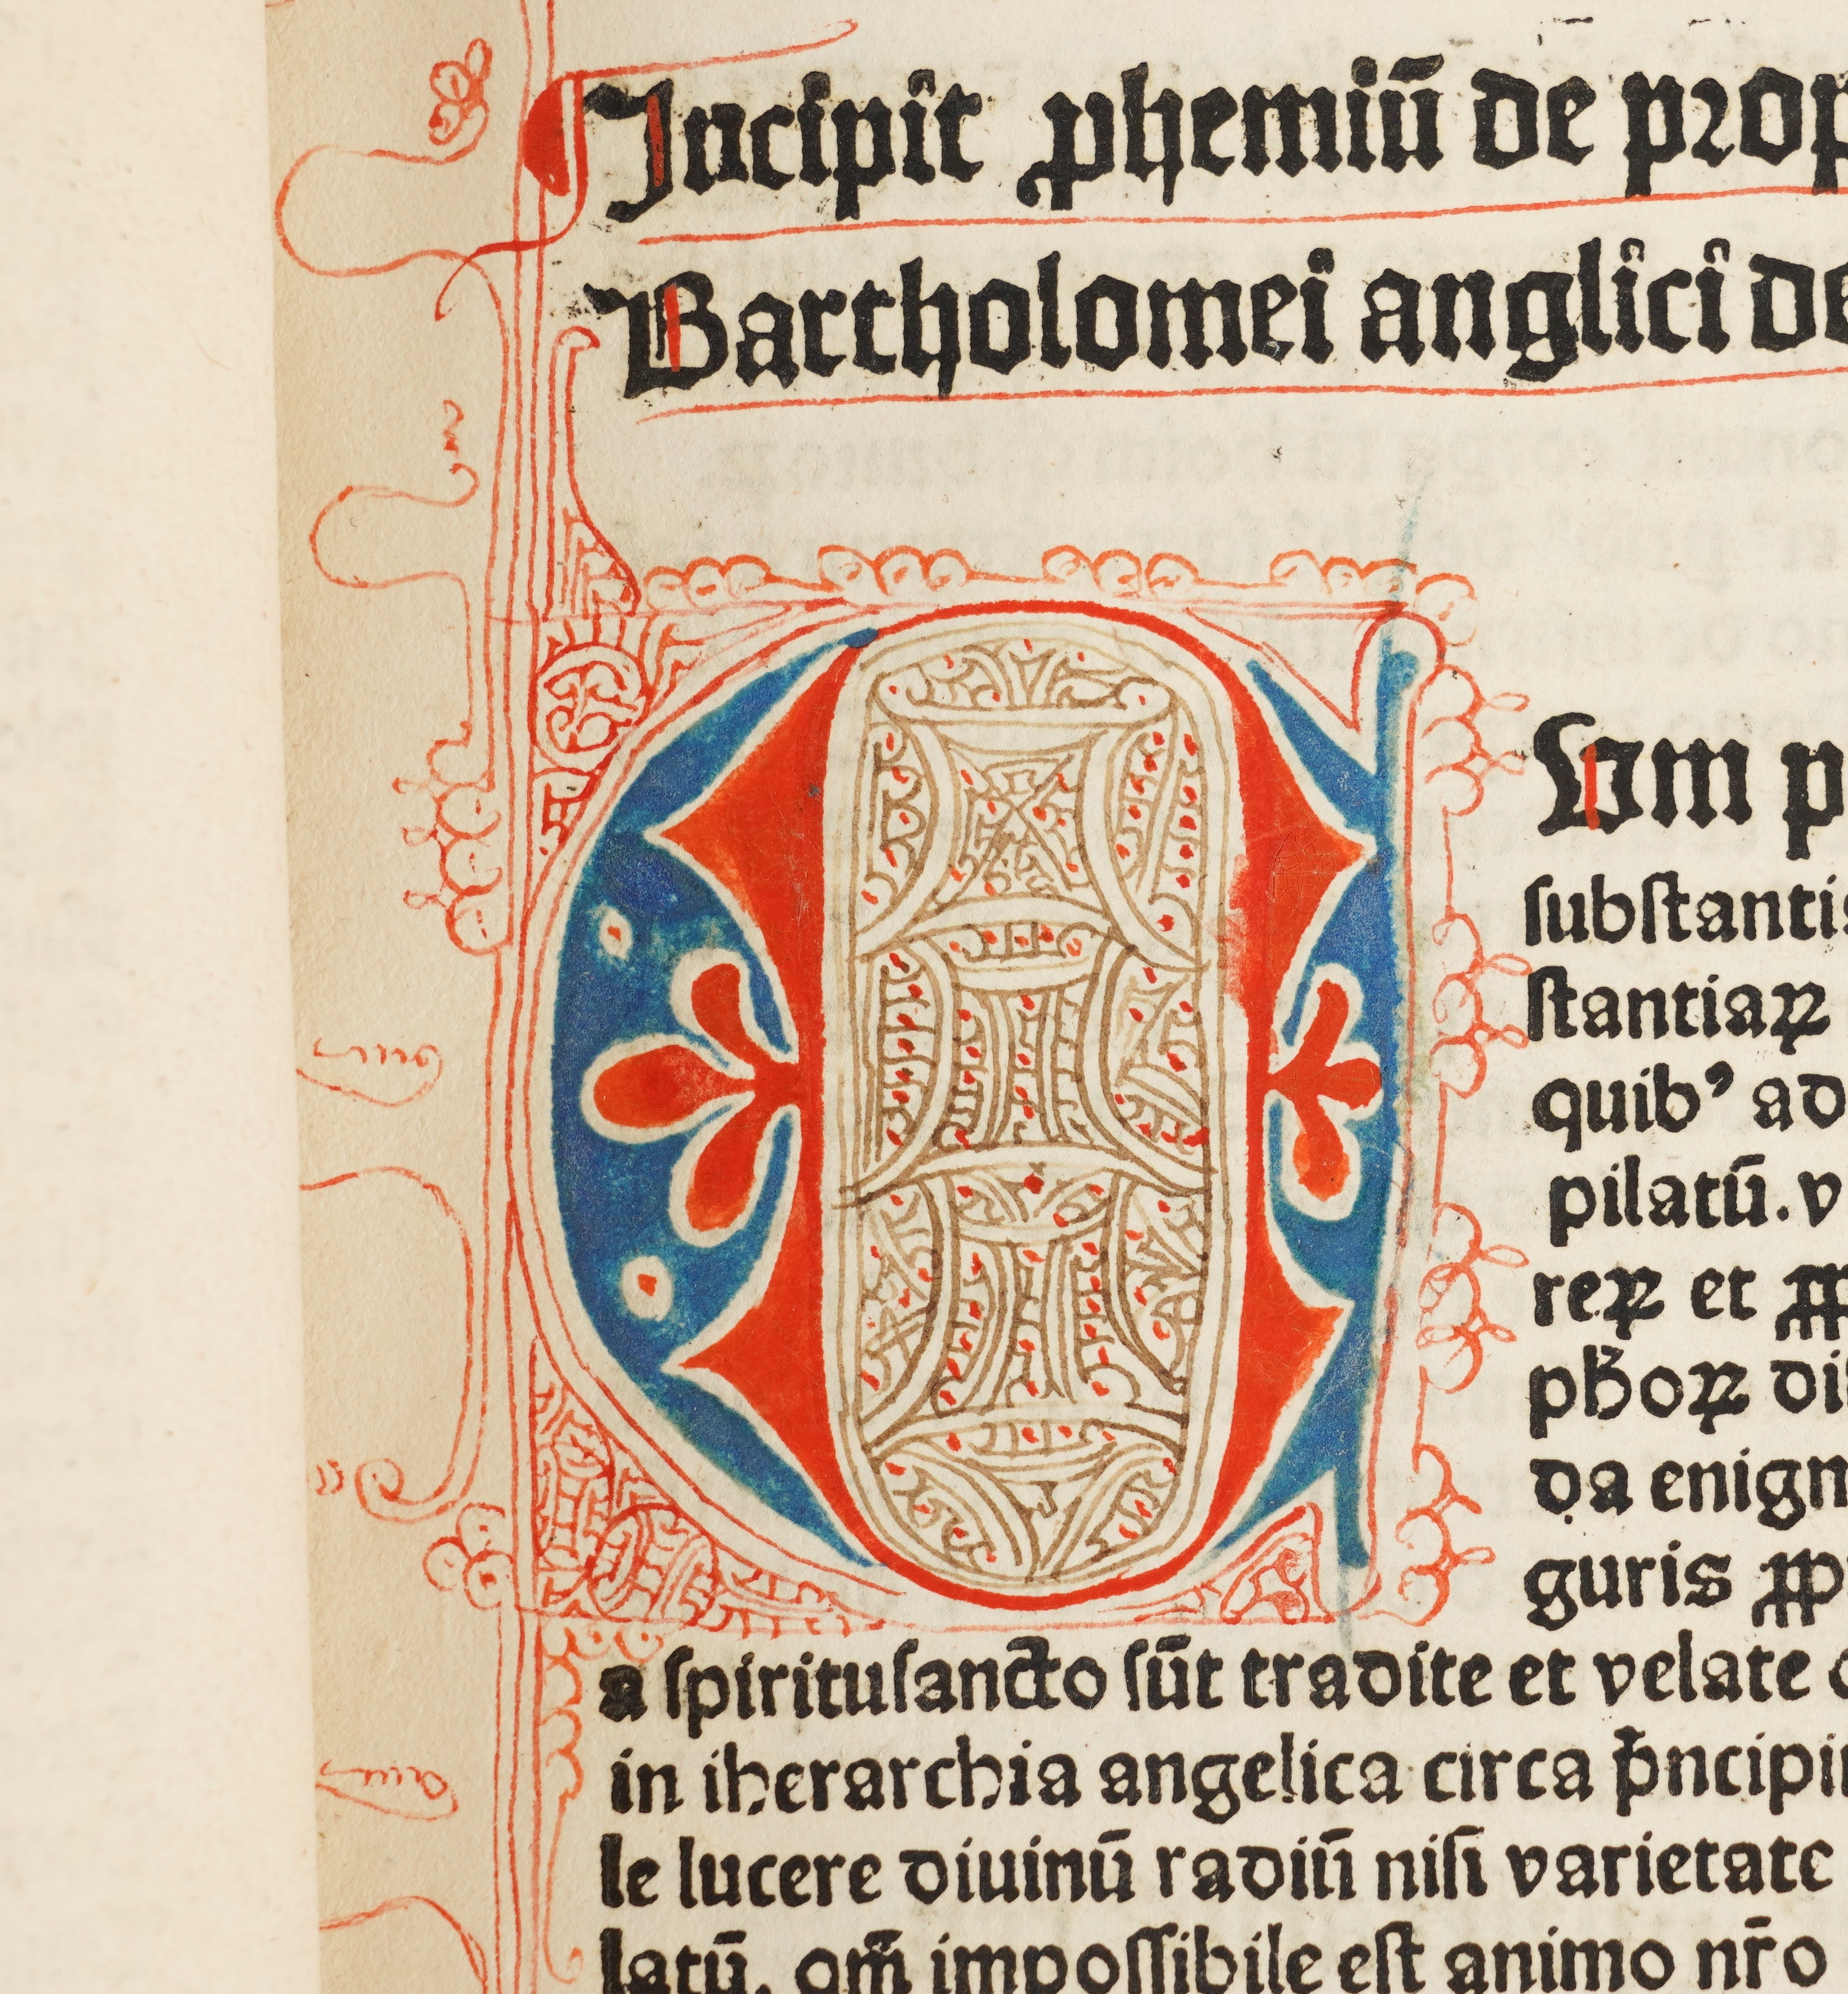 Incipit ꝓhemiū de prop
Bartholomei anglici de
C
Um p
ſubſtantis
ſtantiaꝝ
quibꝰ ad
pilatū. v
reꝝ et ꝓp
pħoꝝ di
da enigm
guris ꝓp
a ſpirituſancto ſūt tradite et velate
in iherarchia angelica circa p̄ncipiu
le lucere diuinū radiū niſi varietate
latū. om̄ impoſſibile eſt animo nr̄o